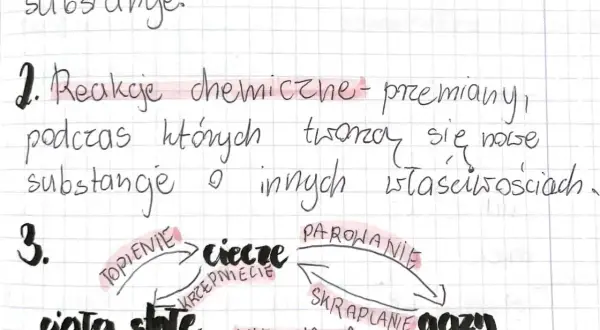 substancje.
2. Reakcje chemiczne - przemiany,
podczas których tworzą się nowe
substancje o innych właściwościach.
3.
TOPIENIE ciecze PAROWANIE
KRZEPNIĘCIE
SKRAPLANIE
ciała stałe gazy